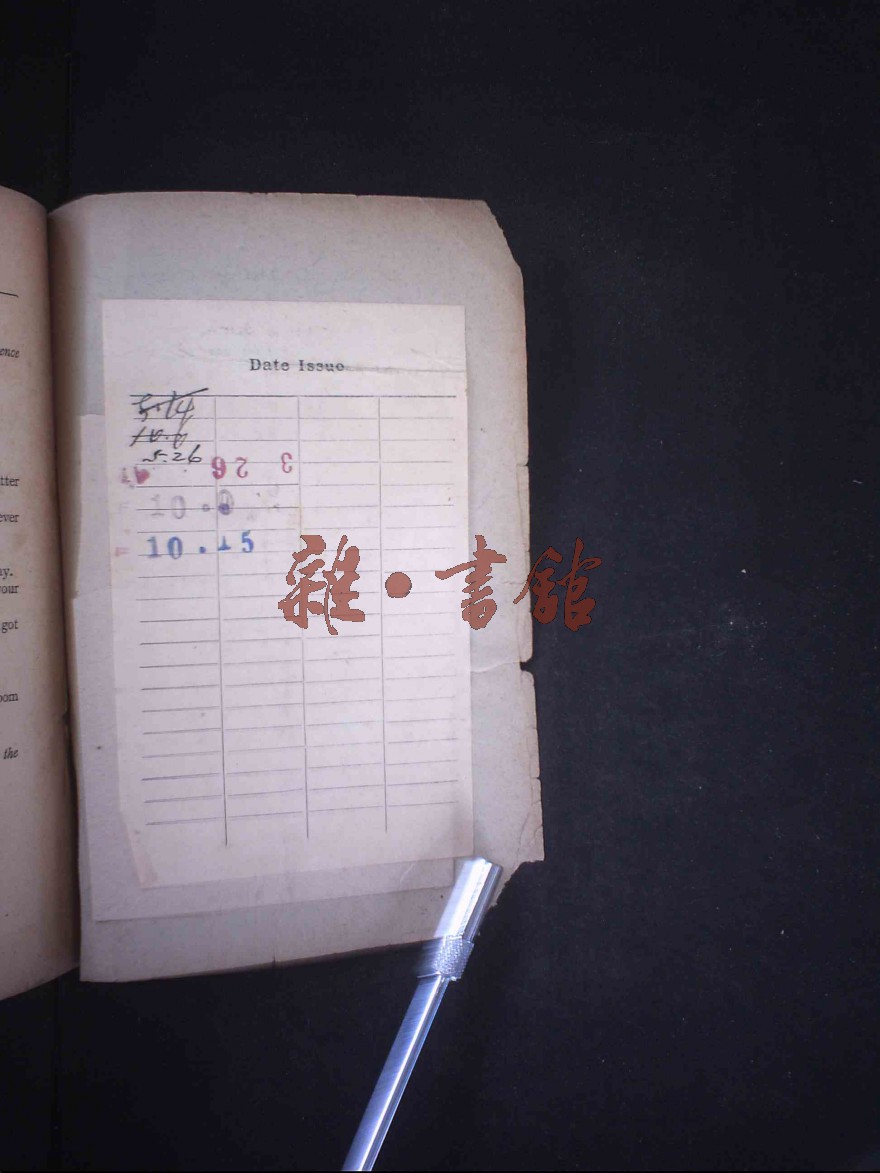 ence
tter
ever
ay.
your
got
oom
the
Date Issue
5.14
10.6
5.26
26 3
10.
10.15
雜·書館